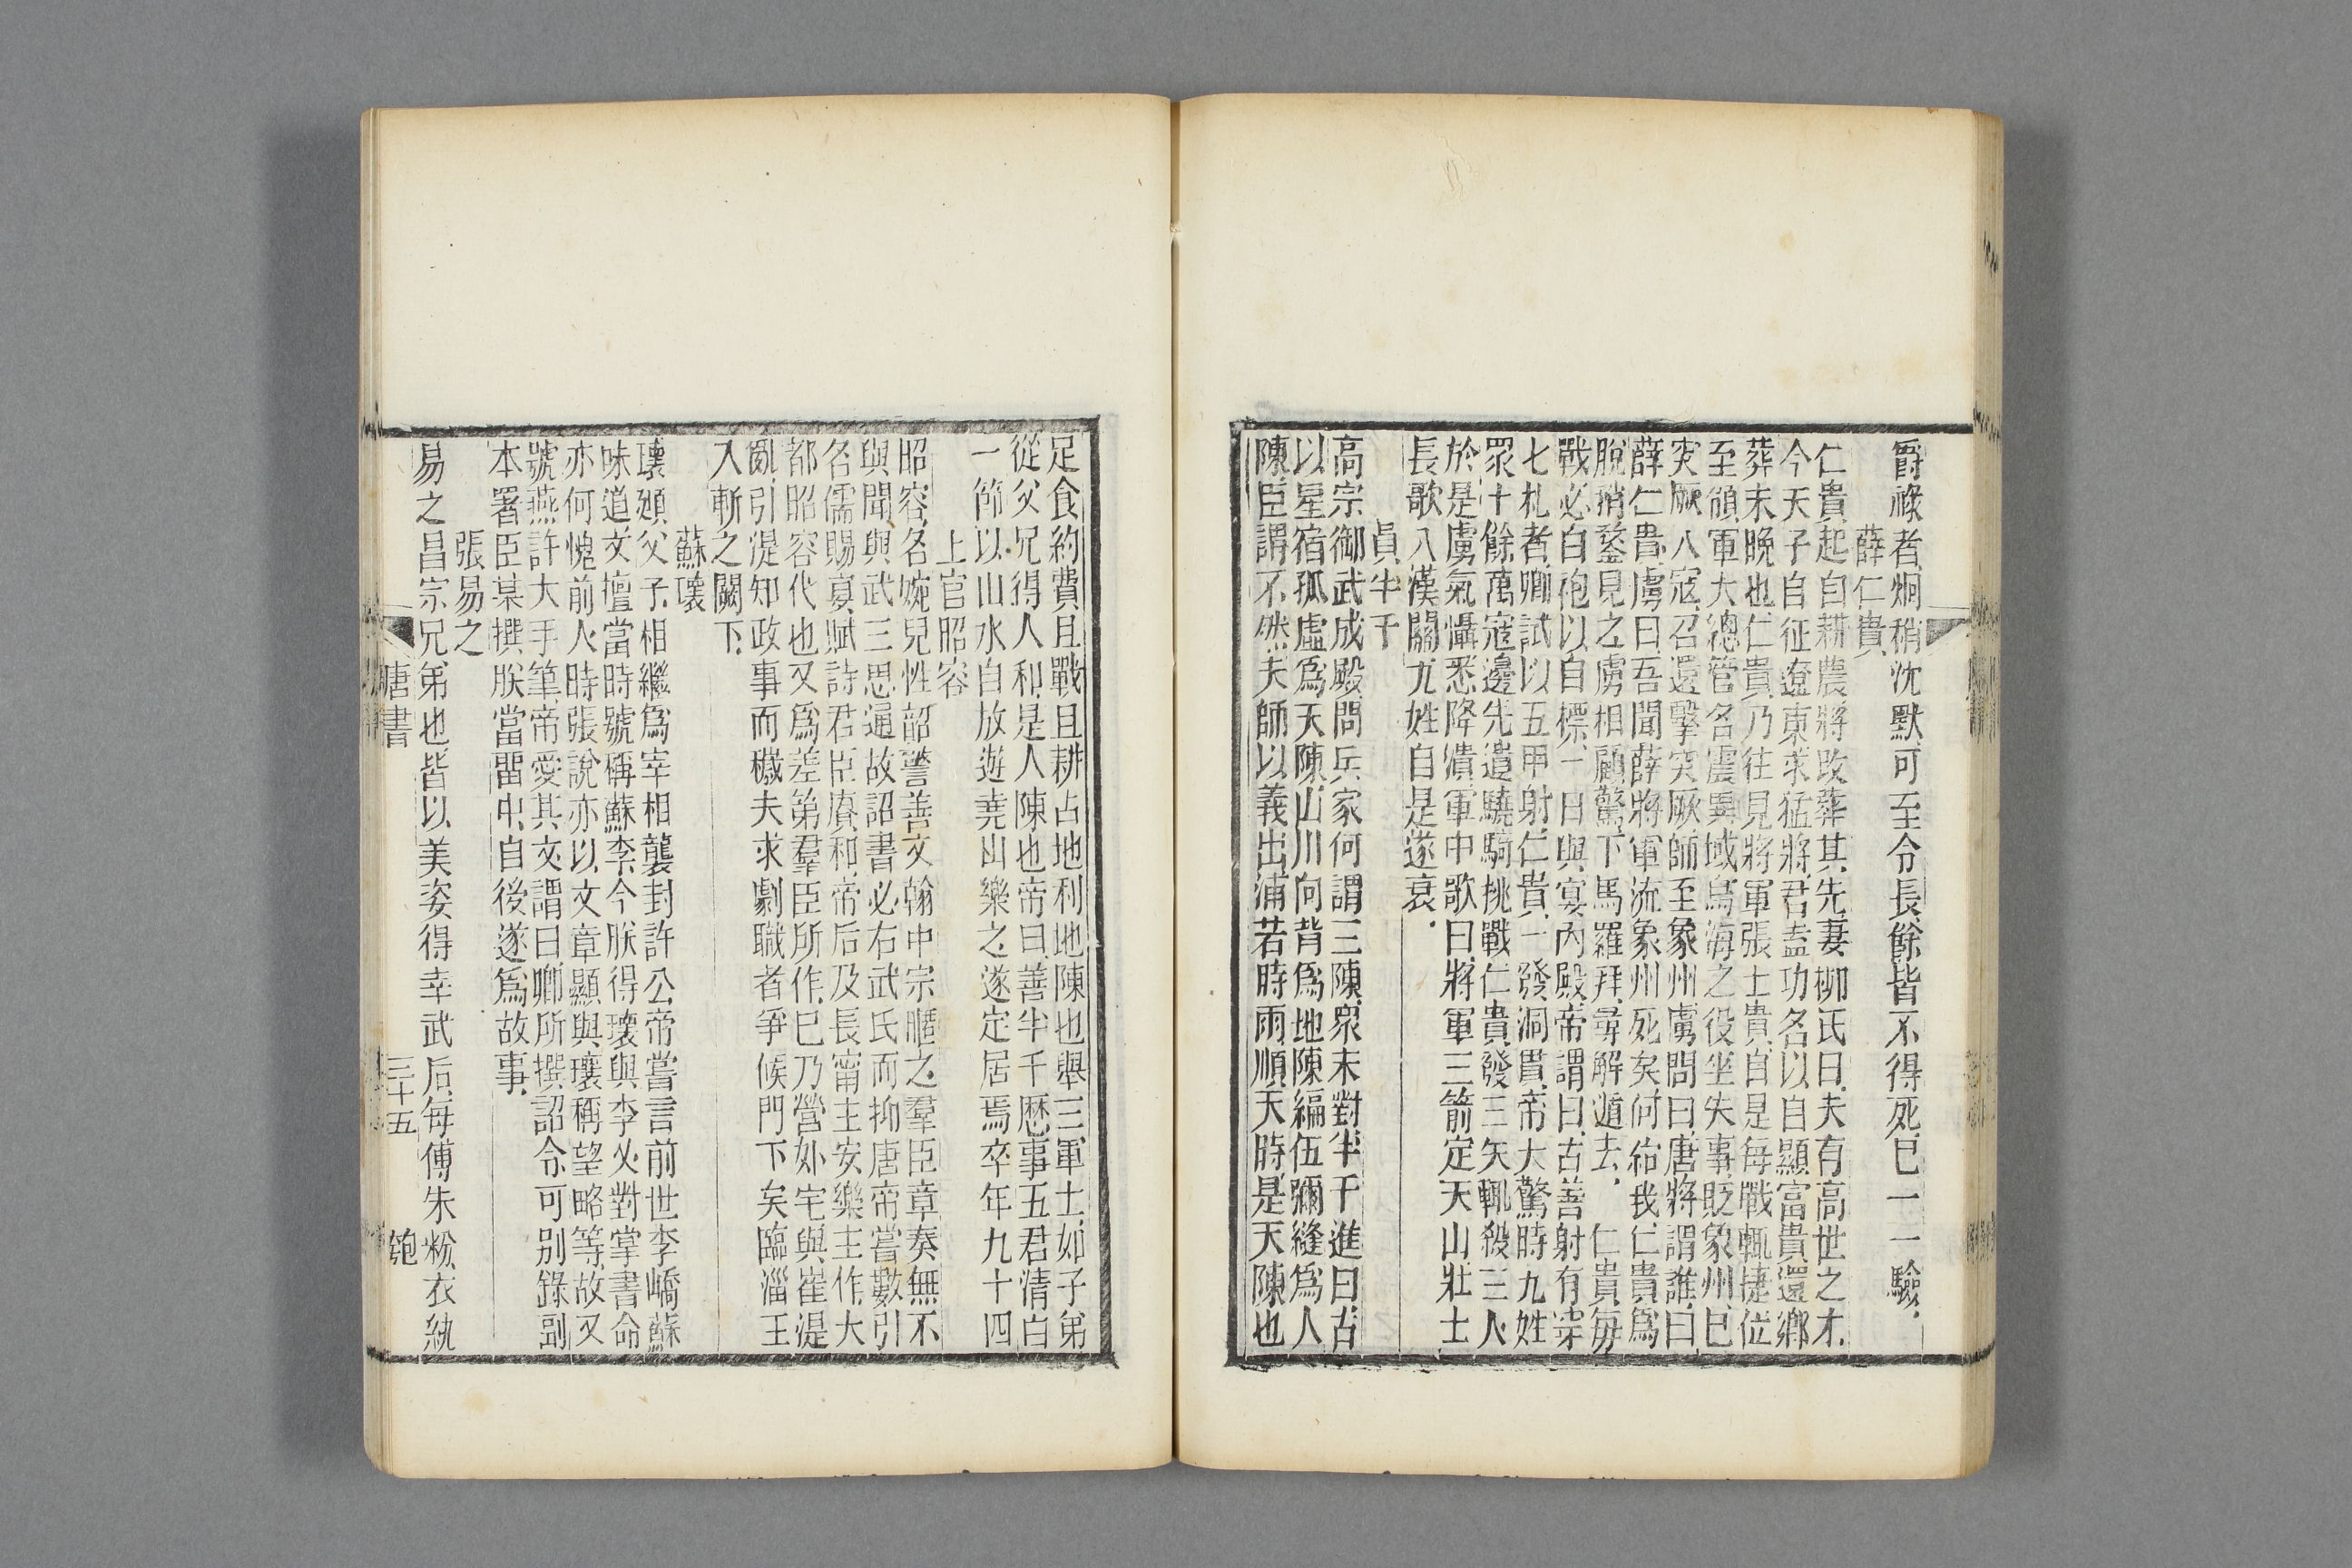 爵祿者烱稍沈默可至令長餘皆不得死巳一一驗
薛仁貴
仁貴起自耕農將改葬其先妻柳氏曰夫有高世之才
今天子自征遼東求猛將君盍功名以自顯富貴還鄉
葬未晚也仁貴乃往見將軍張士貴自是每戰輒捷位
至領軍大總管名震異域烏海之役坐失事貶象州巳
突厥入寇召還擊突厥師至象州虜問曰唐將謂誰曰
薛仁貴虜曰吾聞薛將軍流象州死矣何紿我仁貴爲
脫鞘鍪見之虜相顧驚下馬羅拜尋解遁去 仁貴每
戰必白袍以自標一日與宴內殿帝謂曰古善射有穿
七札者卿試以五甲射仁貴一發洞貫帝大驚時九姓
眾十餘萬寇邊先遣驍騎挑戰仁貴發三矢輒殺三人
於是虜氣懾悉降潰軍中歌曰將軍三箭定天山壯士
長歌入漢關九姓自是遂衰
員半千
高宗御武成殿問兵家何謂三陳衆未對半千進曰古
以星宿孤虛爲天陳山川向背爲地陳編伍彌縫爲人
陳臣謂不然夫師以義出沛若時雨順天時是天陳也
足食約費且戰且耕占地利地陳也舉三軍士如子弟
從父兄得人和是人陳也帝曰善半千歷事五君清白
一節以山水自放遊堯山樂之遂定居焉卒年九十四
上官昭容
昭容名婉兒性韶警善文翰中宗暱之羣臣章奏無不
與聞與武三思通故詔書必右武氏而抑唐帝嘗數引
名儒賜宴賦詩君臣賡和帝后及長甯主安樂主作大
都昭容代也又爲差第羣臣所作巳乃營外宅與崔湜
亂引湜知政事而穢夫求劇職者爭候門下矣臨淄王
入斬之闕下
蘇瓌
瓌頲父子相繼爲宰相襲封許公帝嘗言前世李嶠蘇
味道文擅當時號稱蘇李今朕得瓌與李乂對掌書命
亦何愧前人時張說亦以文章顯與瓌稱望略等故又
號燕許大手筆帝愛其文謂曰卿所撰詔令可別錄副
本署臣某撰朕當畱中自後遂爲故事
張易之
易之昌宗兄弟也皆以美姿得幸武后每傅朱粉衣紈
唐書 三十五 匏